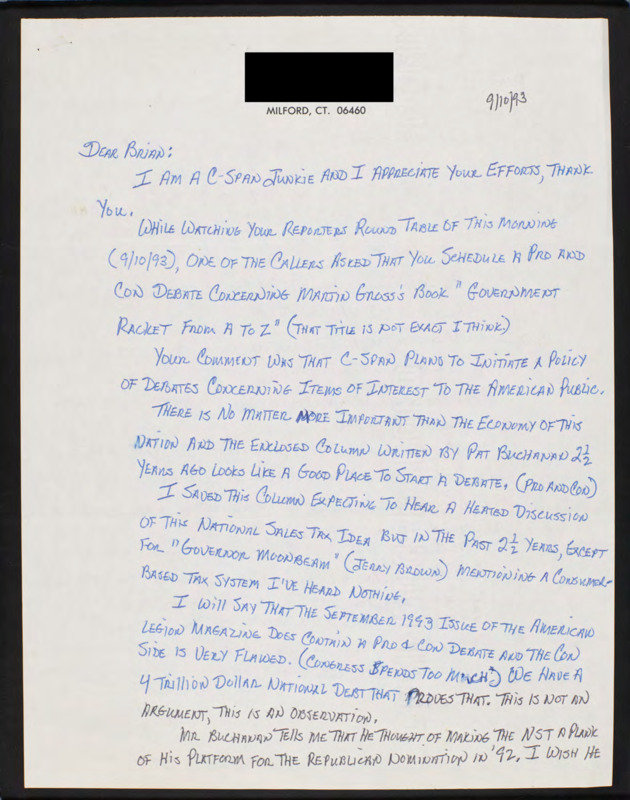 MILFORD, CT. 06460
9/10/93
DEAR BRIAN:
I AM A C-SPAN JUNKIE AND I APPRECIATE YOUR EFFORTS, THANK
YOU.
WHILE WATCHING YOUR REPORTERS ROUND TABLE OF THIS MORNING
(9/10/93), ONE OF THE CALLERS ASKED THAT YOU SCHEDULE A PRO AND
CON DEBATE CONCERNING MARTIN GROSS'S BOOK "GOVERNMENT
RACKET FROM A TO Z" (THAT TITLE IS NOT EXACT I THINK)
YOUR COMMENT WAS THAT C-SPAN PLANS TO INITIATE A POLICY
OF DEBATES CONCERNING ITEMS OF INTEREST TO THE AMERICAN PUBLIC.
THERE IS NO MATTER MORE IMPORTANT THAN THE ECONOMY OF THIS
NATION AND THE ENCLOSED COLUMN WRITTEN BY PAT BUCHANAN 2½
YEARS AGO LOOKS LIKE A GOOD PLACE TO START A DEBATE. (PRO AND CON)
I SAVED THIS COLUMN EXPECTING TO HEAR A HEATED DISCUSSION
OF THIS NATIONAL SALES TAX IDEA BUT IN THE PAST 2½ YEARS, EXCEPT
FOR "GOVERNOR MOONBEAM" (JERRY BROWN) MENTIONING A CONSUMER-
BASED TAX SYSTEM I'VE HEARD NOTHING.
I WILL SAY THAT THE SEPTEMBER 1993 ISSUE OF THE AMERICAN
LEGION MAGAZINE DOES CONTAIN A PRO & CON DEBATE AND THE CON
SIDE IS VERY FLAWED. (CONGRESS SPENDS TOO MUCH?) WE HAVE A
4 TRILLION DOLLAR NATIONAL DEBT THAT PROVES THAT. THIS IS NOT AN
ARGUMENT, THIS IS AN OBSERVATION.
MR BUCHANAN TELLS ME THAT HE THOUGHT OF MAKING THE NST A PLANK
OF HIS PLATFORM FOR THE REPUBLICAN NOMINATION IN '92. I WISH HE